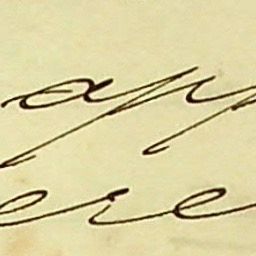 app
ere